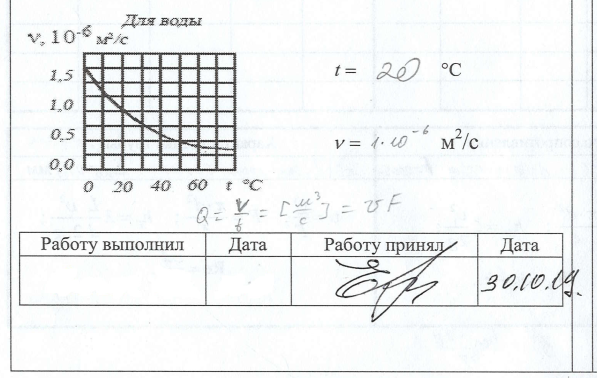 Для воды
ν, 10⁻⁶ м²/с
1,5
1,0
0,5
0,0
0 20 40 60 t °C
t = 20 °C
ν = 1·10⁻⁶ м²/с
Q = V/t = [м³/с] = υF
Работу выполнил Дата Работу принял Дата
30.10.19.